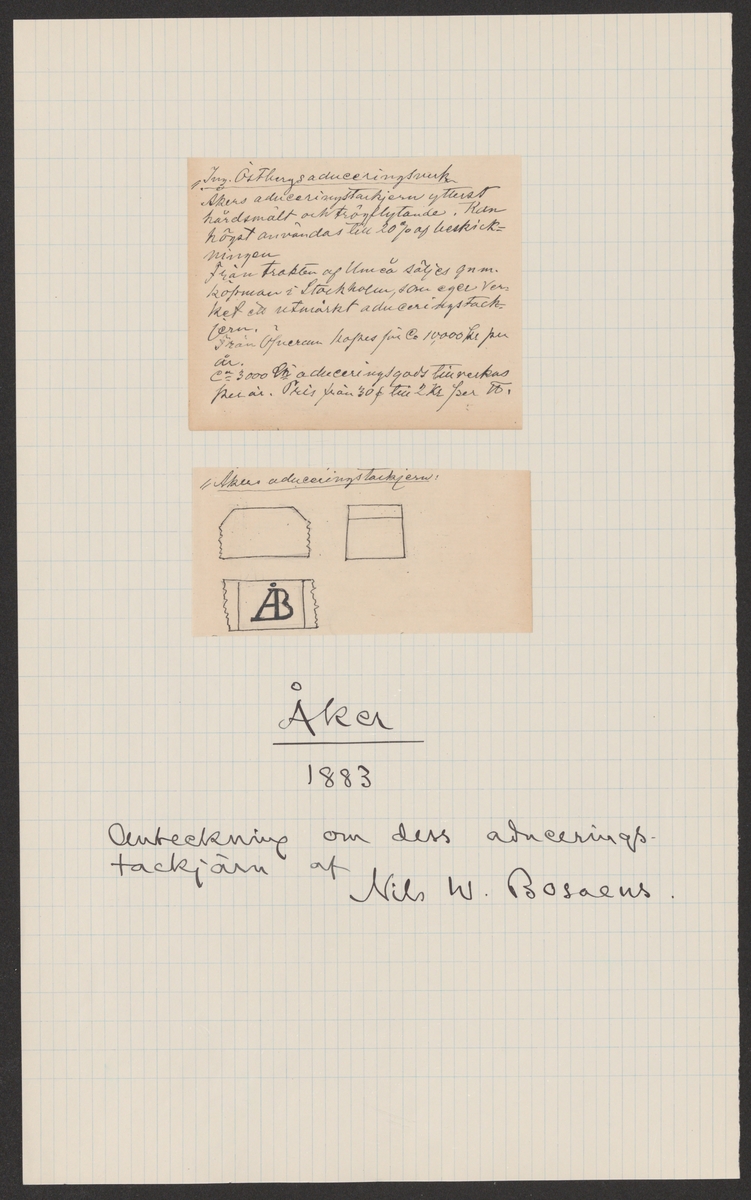 Ing. Östbergs aduceringsverk.
Åkers aduceringstackjern ytterst
hårdsmält och trögflytande. Kan
högst användas till 20% af beskick-
ningen
Från trakten af Umeå säljes gnm.
köpman i Stockholm, som eger ver-
ket ett utmärkt aduceringstack-
jern.
Från Öfverum kopes för Ca 10000 kr per
år.
Ca 3000 aduceringsgods tillverkas
per år. Pris från 30 till 2 kr per ℔.
Åkers aduceringstackjern:
ÅB
Åker
1883
Anteckning om dess aducerings-
tackjärn af
Nils W. Bosaeus.